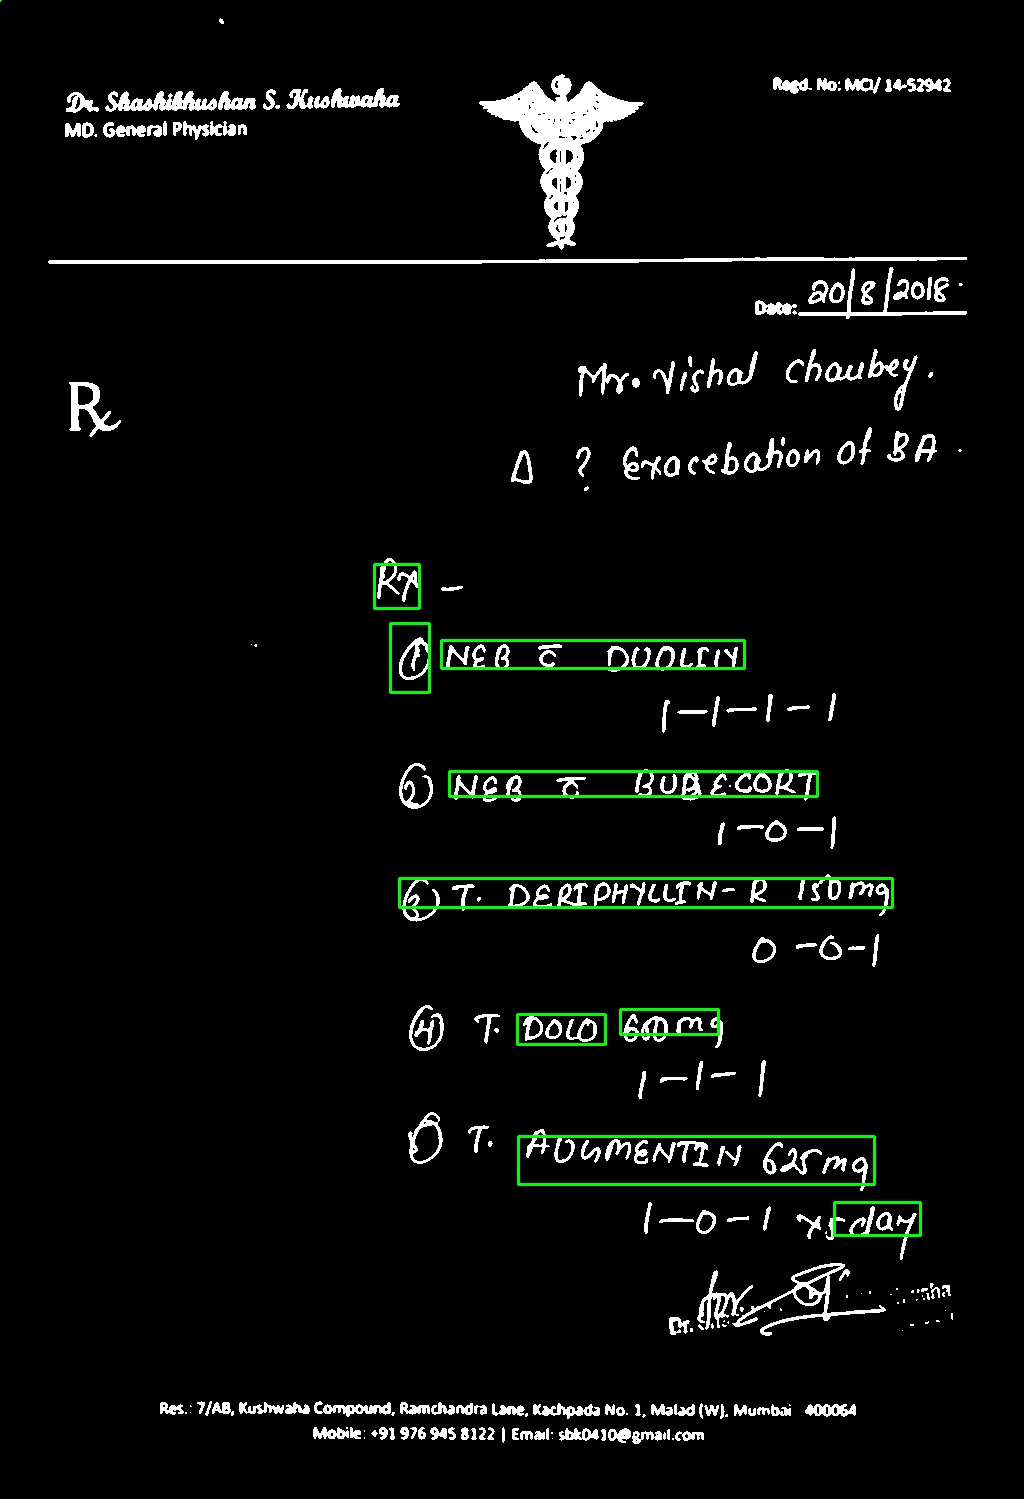 Dr. Shashibhushan S. Kushwaha
MD. General Physician
Regd. No: MCI/ 14-52942
Date: 20/8/2018
Rx
Mr. Vishal Chaubey.
Δ ? Exacebation of BA.
Rx -
① NEB c̄ DUOLIN
1-1-1-1
② NEB c̄ BUDECORT
1-0-1
③ T. DERIPHYLLIN-R 150mg
0-0-1
④ T. DOLO 650mg
1-1-1
⑤ T. AUGMENTIN 625mg
1-0-1 x5 day
Dr.
Res.: 7/AB, Kushwaha Compound, Ramchandra Lane, Kachpada No. 1, Malad (W), Mumbai 400064
Mobile: +91 976 945 8122 | Email: sbk0410@gmail.com